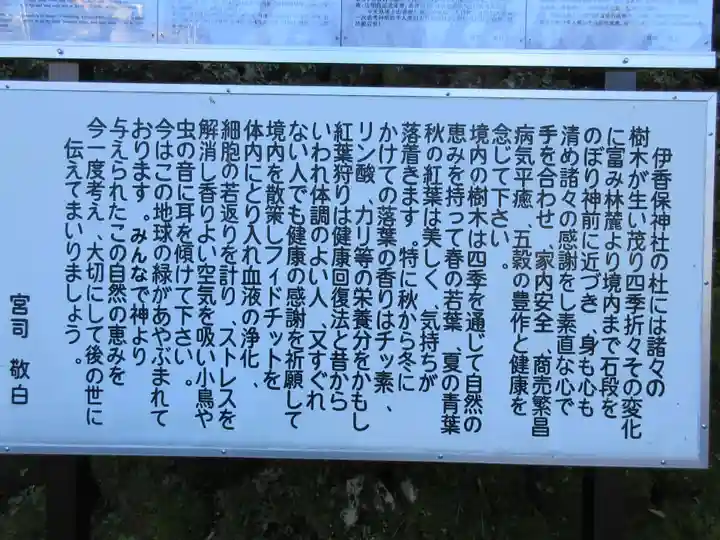 伊香保神社の杜には諸々の
樹木が生い茂り四季折々その変化
に富み林麓より境内まで石段を
のぼり神前に近づき、身も心も
清め諸々の感謝をし素直な心で
手を合わせ、家内安全、商売繁昌
病気平癒、五穀の豊作と健康を
念じて下さい。
境内の樹木は四季を通じて自然の
恵みを持って春の若葉、夏の青葉
秋の紅葉は美しく、気持ちが
落着きます。特に秋から冬に
かけての落葉の香りはチッ素、
リン酸、カリ等の栄養分をかもし
紅葉狩りは健康回復法と昔から
いわれ体調のよい人、又すぐれ
ない人でも健康の感謝を祈願して
境内を散策しフィドチットを
体内にとり入れ血液の浄化、
細胞の若返りを計り、ストレスを
解消し香りよい空気を吸い小鳥や
虫の音に耳を傾けて下さい。
今はこの地球の緑があやぶまれて
おります。みんなで神より
与えられたこの自然の恵みを
今一度考え、大切にして後の世に
伝えてまいりましょう。
宮司 敬白